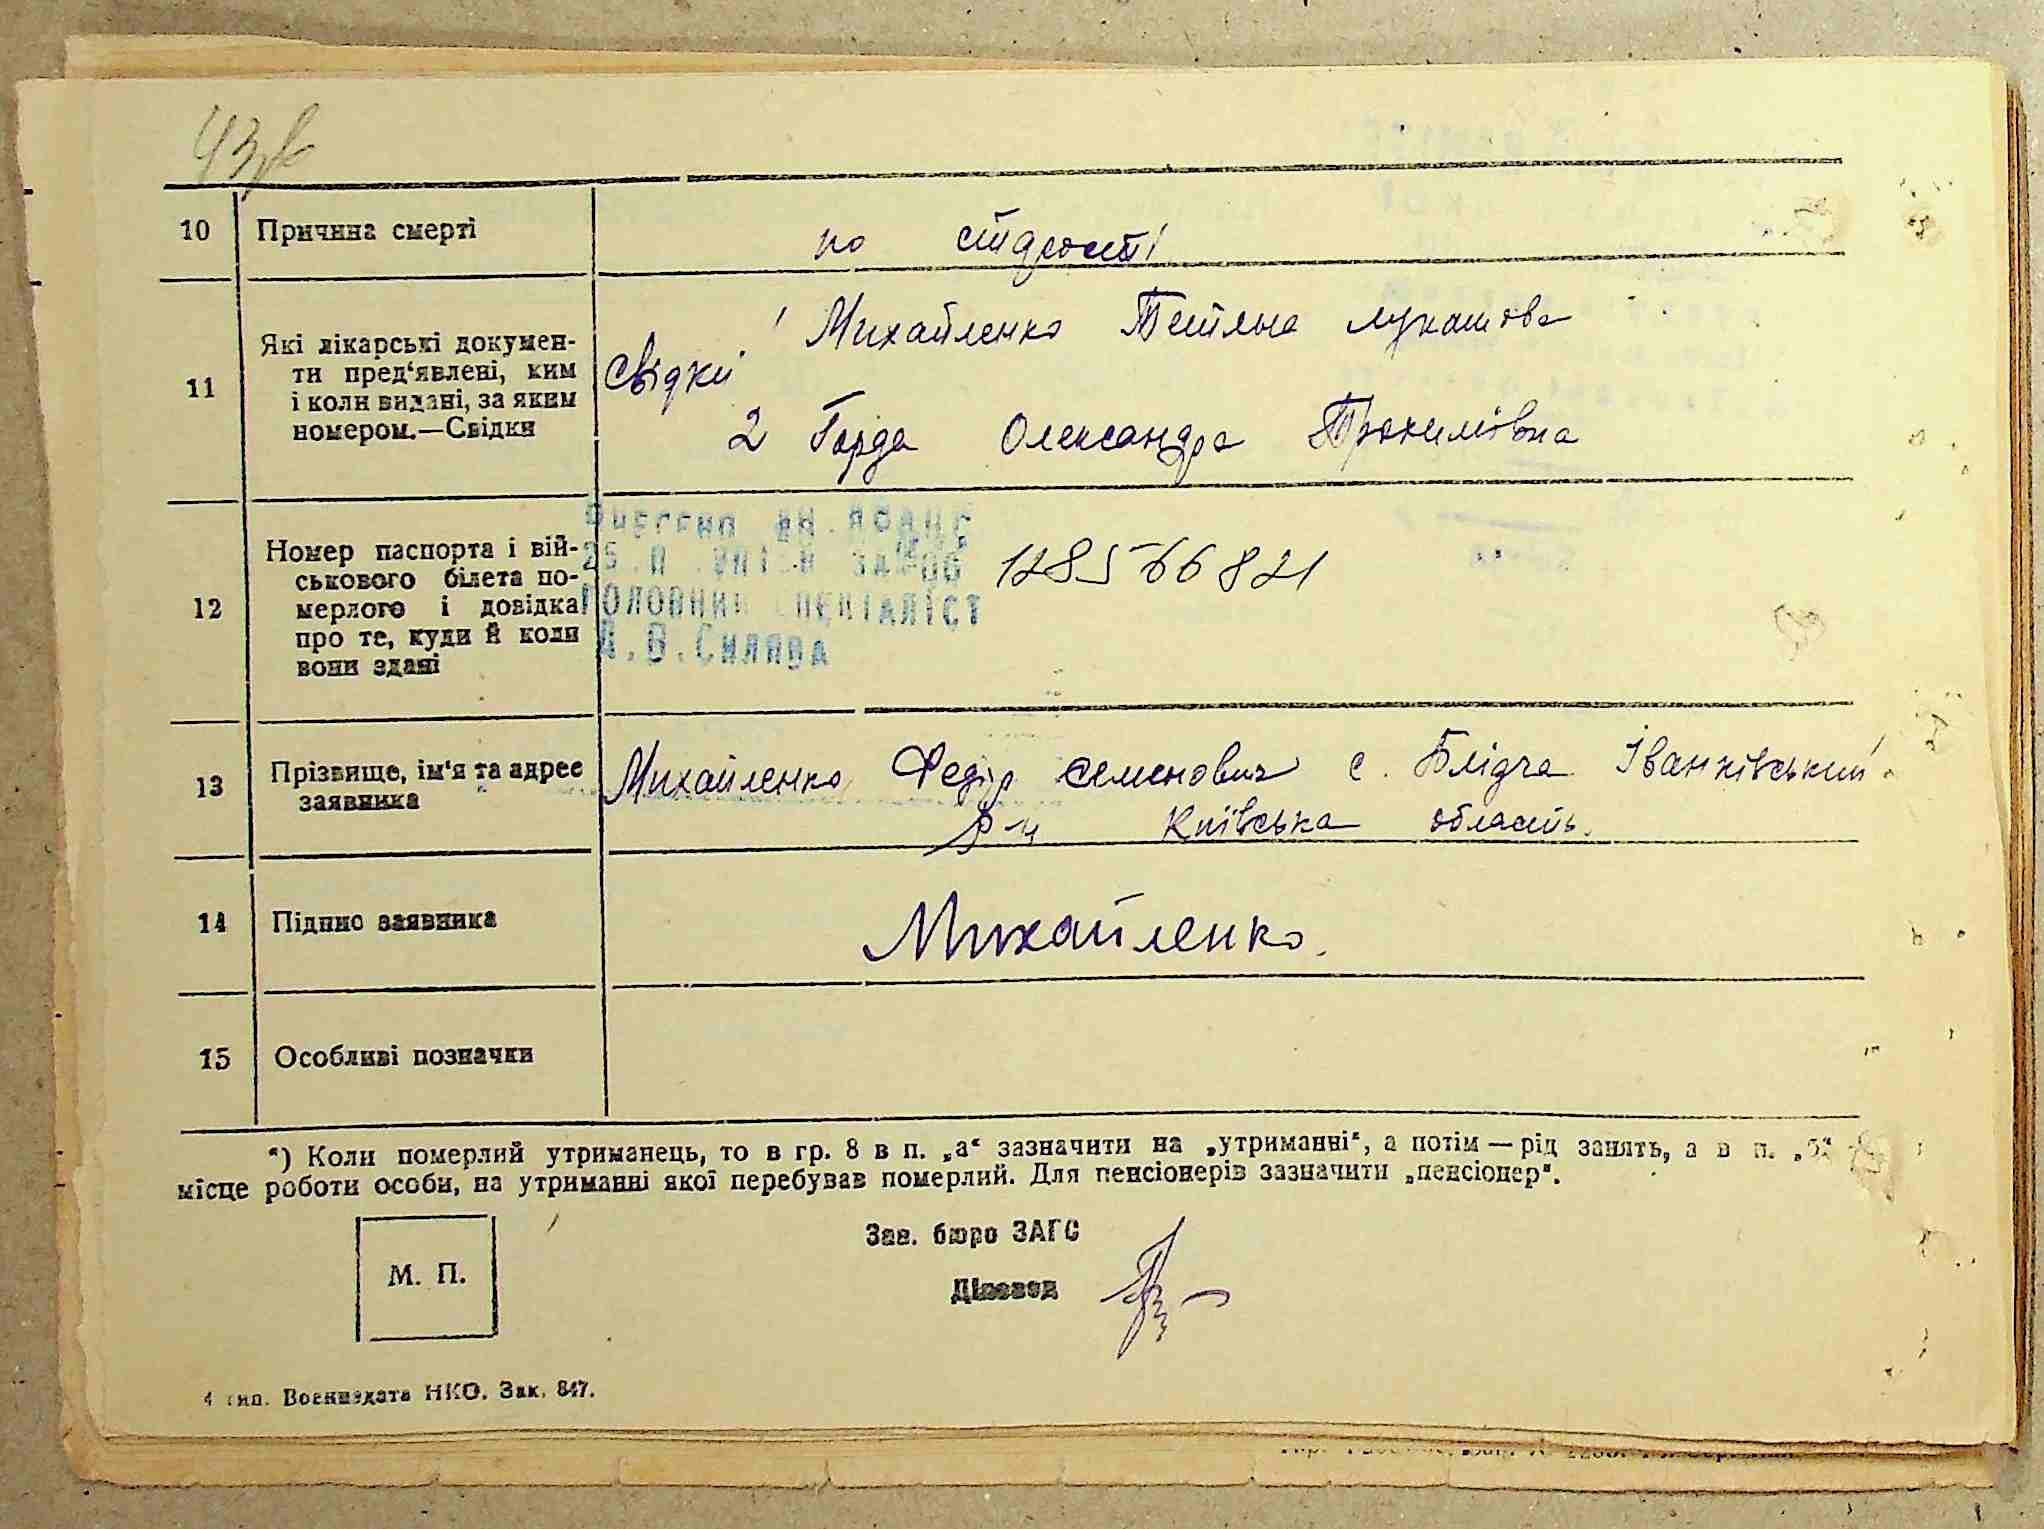 43
10 Причина смерті по старості
11 Які лікарські докумен-
ти пред'явлені, ким
і коли видані, за яким
номером.—Свідки
Свідки
1 Михайленко Тетяна Лукашова
2 Горда Олександра Трохимівна
12 Номер паспорта і вій-
ськового білета по-
мерлого і довідка
про те, куди й коли
вони здані
128566821
Внесено
ГОЛОВНИЙ СПЕЦІАЛІСТ
13 Прізвище, ім'я та адрес
заявника
Михайленко Федір Семенович с. Блідча Іванківський
р-н Київська область.
14 Підпис заявника Михайленко.
15 Особливі позначки
*) Коли померлий утриманець, то в гр. 8 в п. „а“ зазначити на „утриманні“, а потім — рід занять, а в п. „б“
місце роботи особи, на утриманні якої перебував померлий. Для пенсіонерів зазначити „пенсіонер“.
М. П.
Зав. бюро ЗАГС
Діловод
4 тип. Воениздата НКО. Зак. 847.